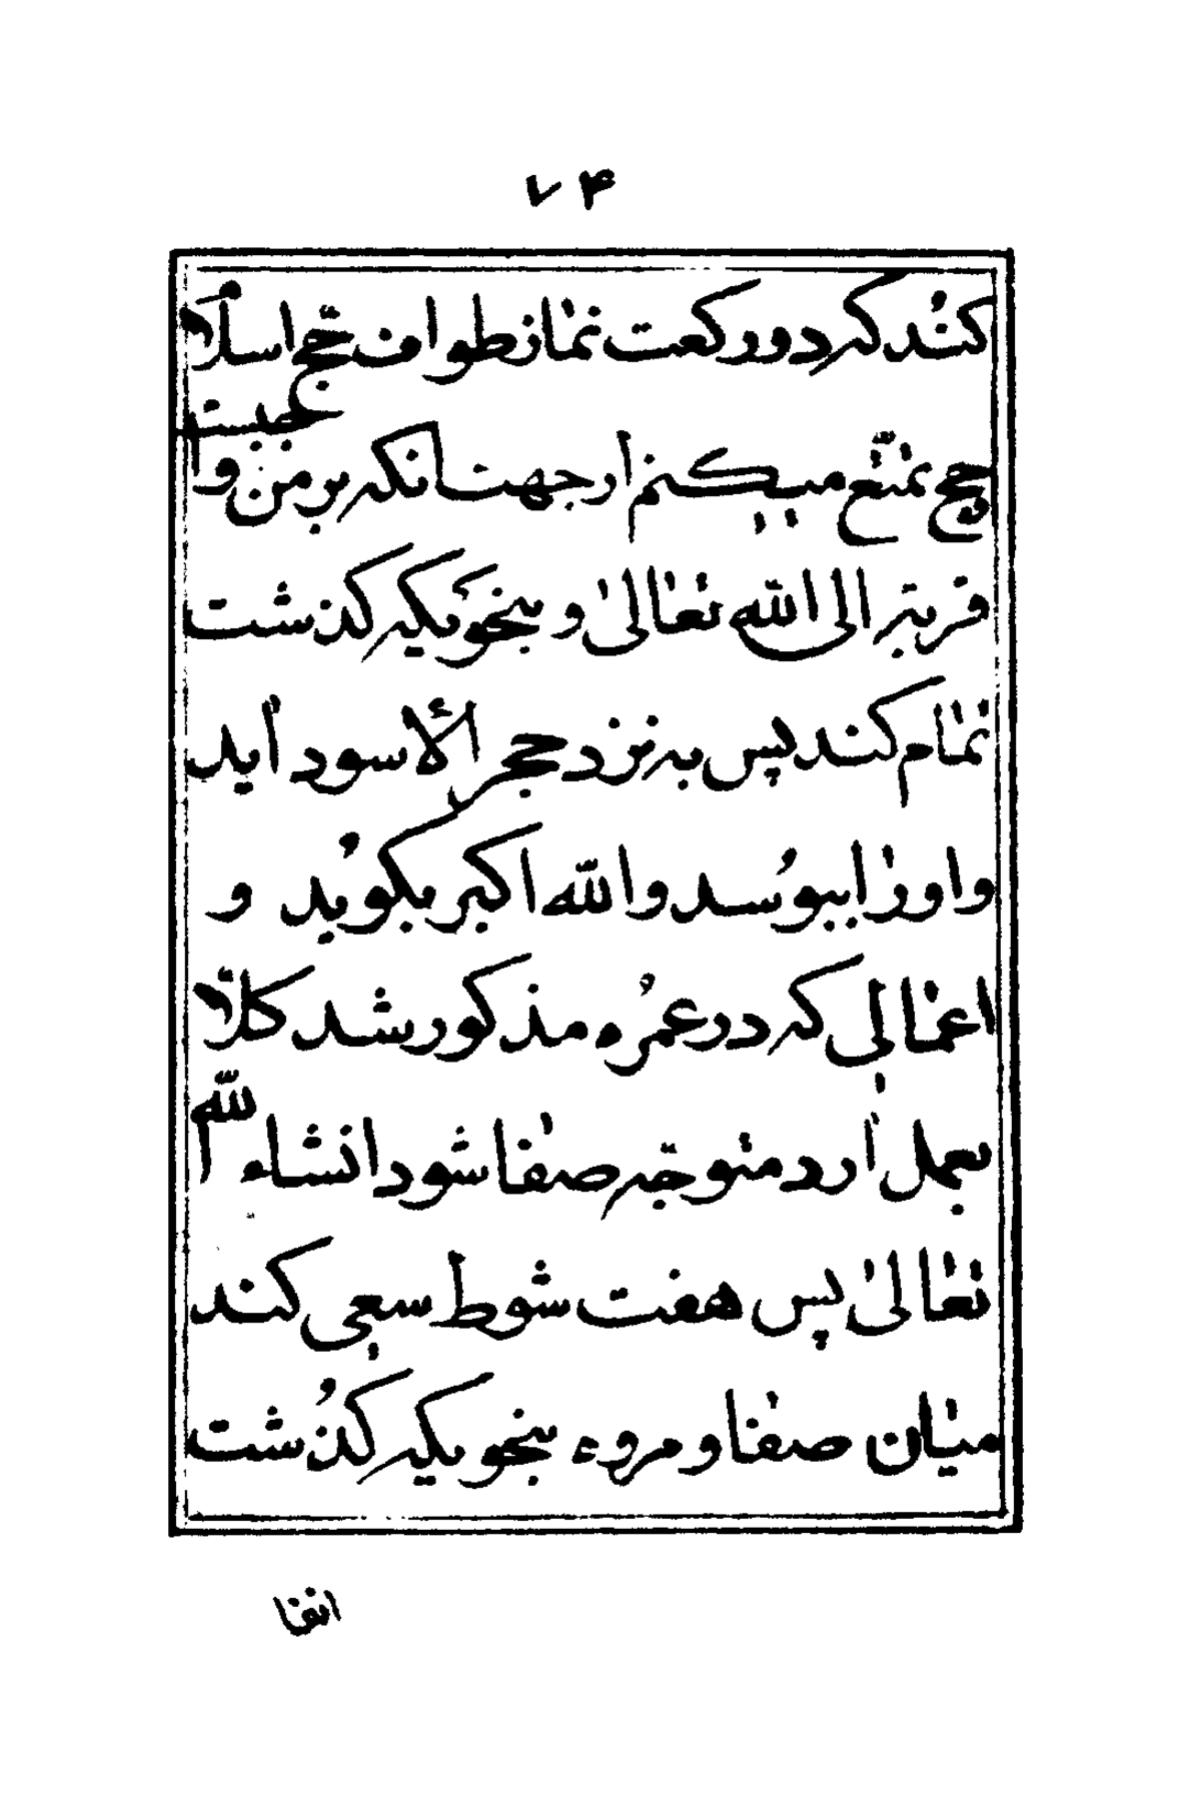 ۷۴
کند که دو رکعت نماز طواف حجّ اسلام
حج تمتّع میکنم از جهت انکه بر من واجبست
قربة الی الله تعالیٰ و بنحویکه کذشت
تمام کند پس به نزد حجر الأسود آید
و اورا ببوسد و الله اکبر بکوید و
اعمالی که در عمره مذکور شد کلّا
بعمل آرد متوجّه صفا شود انشاء الله
تعالیٰ پس هفت شوط سعی کند
میان صفا و مروه بنحویکه کذشت
انفا